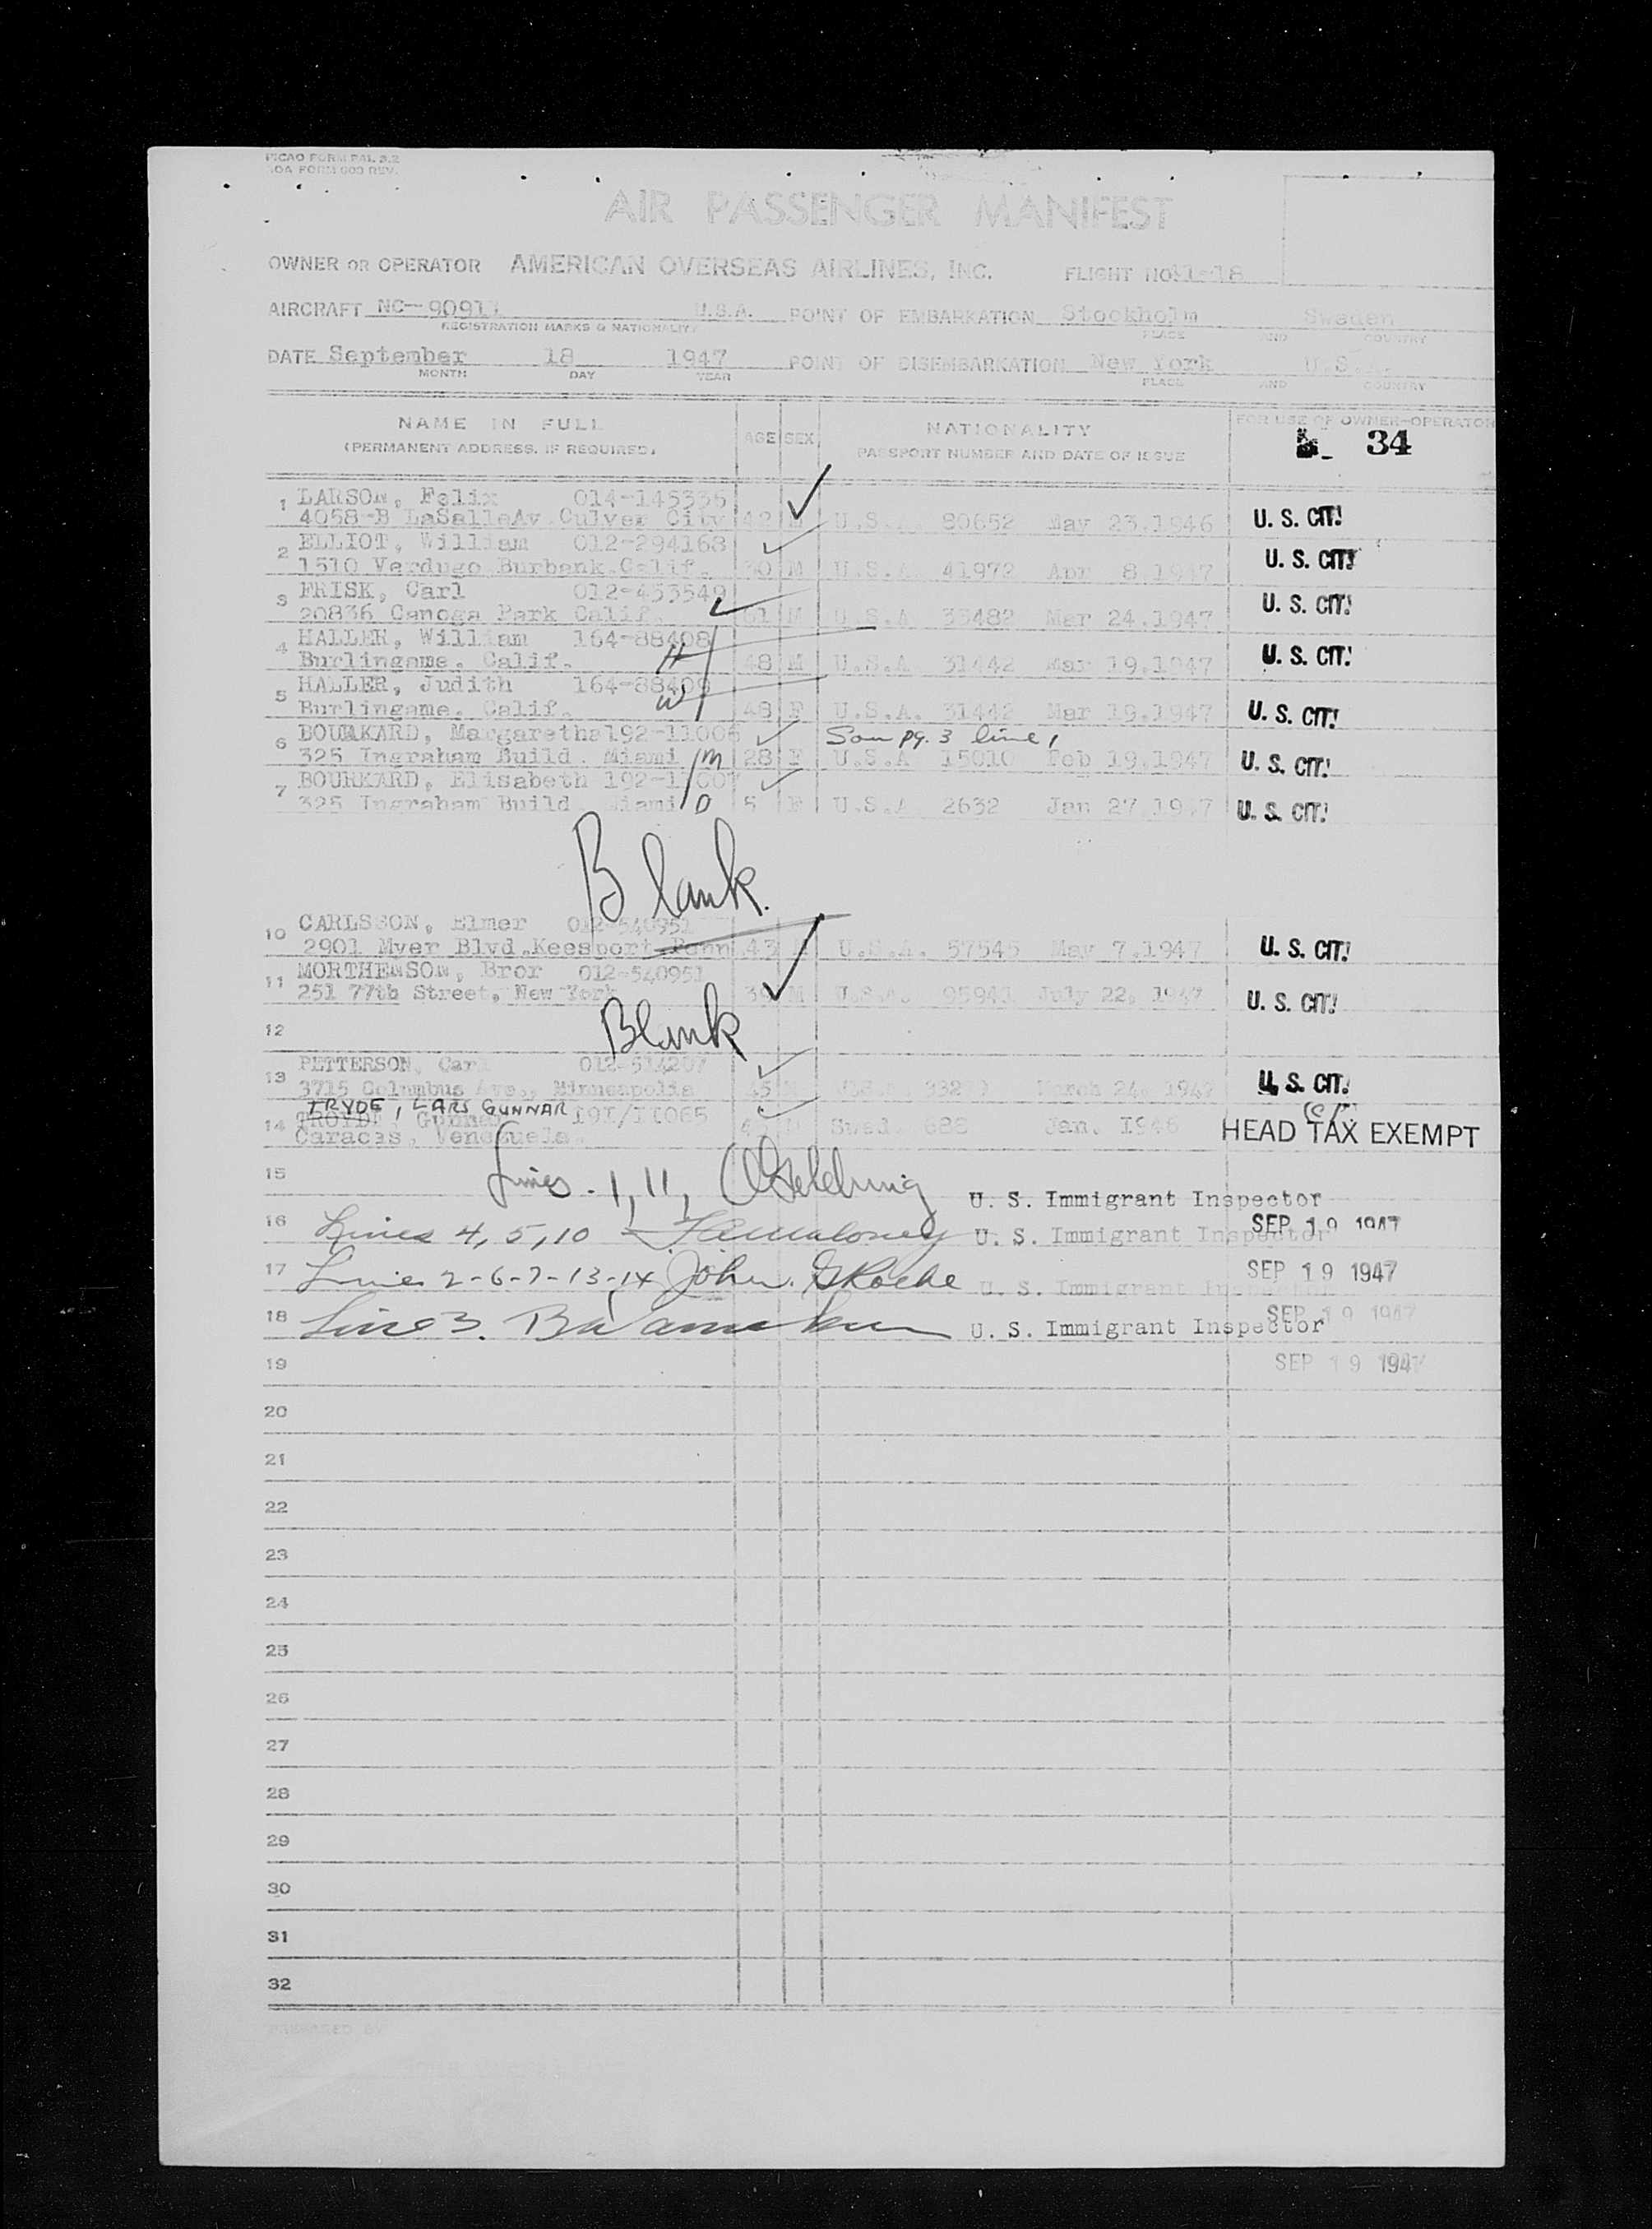 ICAO FORM PAL 9.2
AOA FORM 600 REV.
AIR PASSENGER MANIFEST
OWNER OR OPERATOR AMERICAN OVERSEAS AIRLINES, INC. FLIGHT NO
AIRCRAFT NC-- U.S.A. POINT OF EMBARKATION Stockholm Sweden
REGISTRATION MARKS & NATIONALITY PLACE AND COUNTRY
DATE September 18 1947 POINT OF DISEMBARKATION New York U.S.A.
MONTH DAY YEAR PLACE AND COUNTRY
NAME IN FULL AGE SEX NATIONALITY FOR USE OF OWNER-OPERATOR
(PERMANENT ADDRESS, IF REQUIRED) PASSPORT NUMBER AND DATE OF ISSUE 34
1 LARSON, Felix 014-145335
4058-B LaSalleAv Culver City 42 M U.S.A. 80652 May 23.1946 U. S. CIT!
2 ELLIOT, William 012-294168
1510 Verdugo Burbank Calif. 30 M U.S.A 41972 Apr 8.1947 U. S. CIT!
3 FRISK, Carl 012-453549
20836 Canoga Park Calif. 61 M U.S.A 33482 Mar 24.1947 U. S. CIT!
4 HALLER, William 164-88408
Burlingame. Calif. H 48 M U.S.A 31442 Mar 19.1947 U. S. CIT!
5 HALLER, Judith 164-88409
Burlingame. Calif. W 48 F U.S.A. 31442 Mar 19.1947 U. S. CIT!
6 BOURKARD, Margaretha 192-11006 Son pg. 3 line 1
325 Ingraham Build. Miami M 28 F U.S.A 15010 Feb 19.1947 U. S. CIT!
7 BOURKARD, Elisabeth 192-11007
325 Ingraham Build Miami D 5 F U.S.A 2632 Jan 27 1947 U. S. CIT!
Blank.
10 CARLSSON, Elmer 012-540951
2901 Myer Blvd.Keesport Penn 43 M U.S.A. 57545 May 7.1947 U. S. CIT!
11 MORTHENSON, Bror 012-540951
251 77th Street, New York M U.S.A. 95941 July 22, 1947 U. S. CIT!
12 Blank
13 PETTERSON, Carl 012-514207
3715 Columbus Ave., Minneapolis 45 M U.S.A. March 24, 1947 U. S. CIT!
TRYDE, LARS GUNNAR
14 Gunnar 191/11065 Swed. 688 Jan. 1946 HEAD TAX EXEMPT
Caracas, Venezuela.
15 Lines. 1, 11, U. S. Immigrant Inspector
16 Lines 4, 5, 10 U. S. Immigrant Inspector SEP 19 1947
17 Lines 2-6-7-13-14 John. G Roche U. S. Immigrant Inspector SEP 19 1947
18 Line 3. U. S. Immigrant Inspector SEP 19 1947
19 SEP 19 1947
20
21
22
23
24
25
26
27
28
29
30
31
32
PREPARED BY